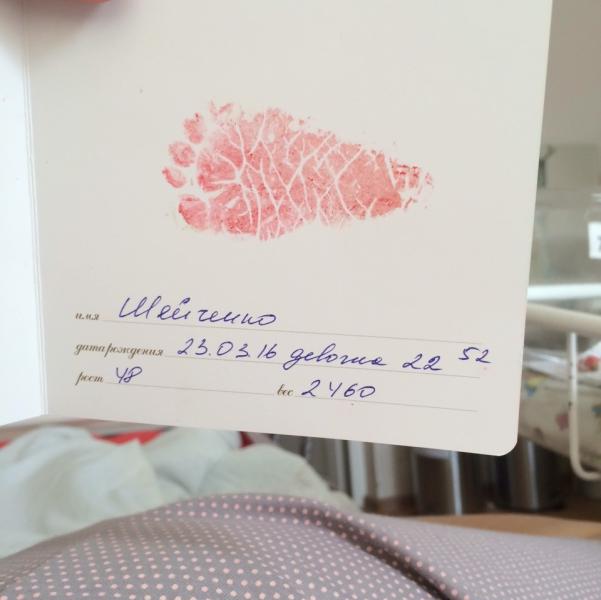 имя Шейченко
дата рождения 23.03.16 девочка 22 52
рост 48 вес 2460